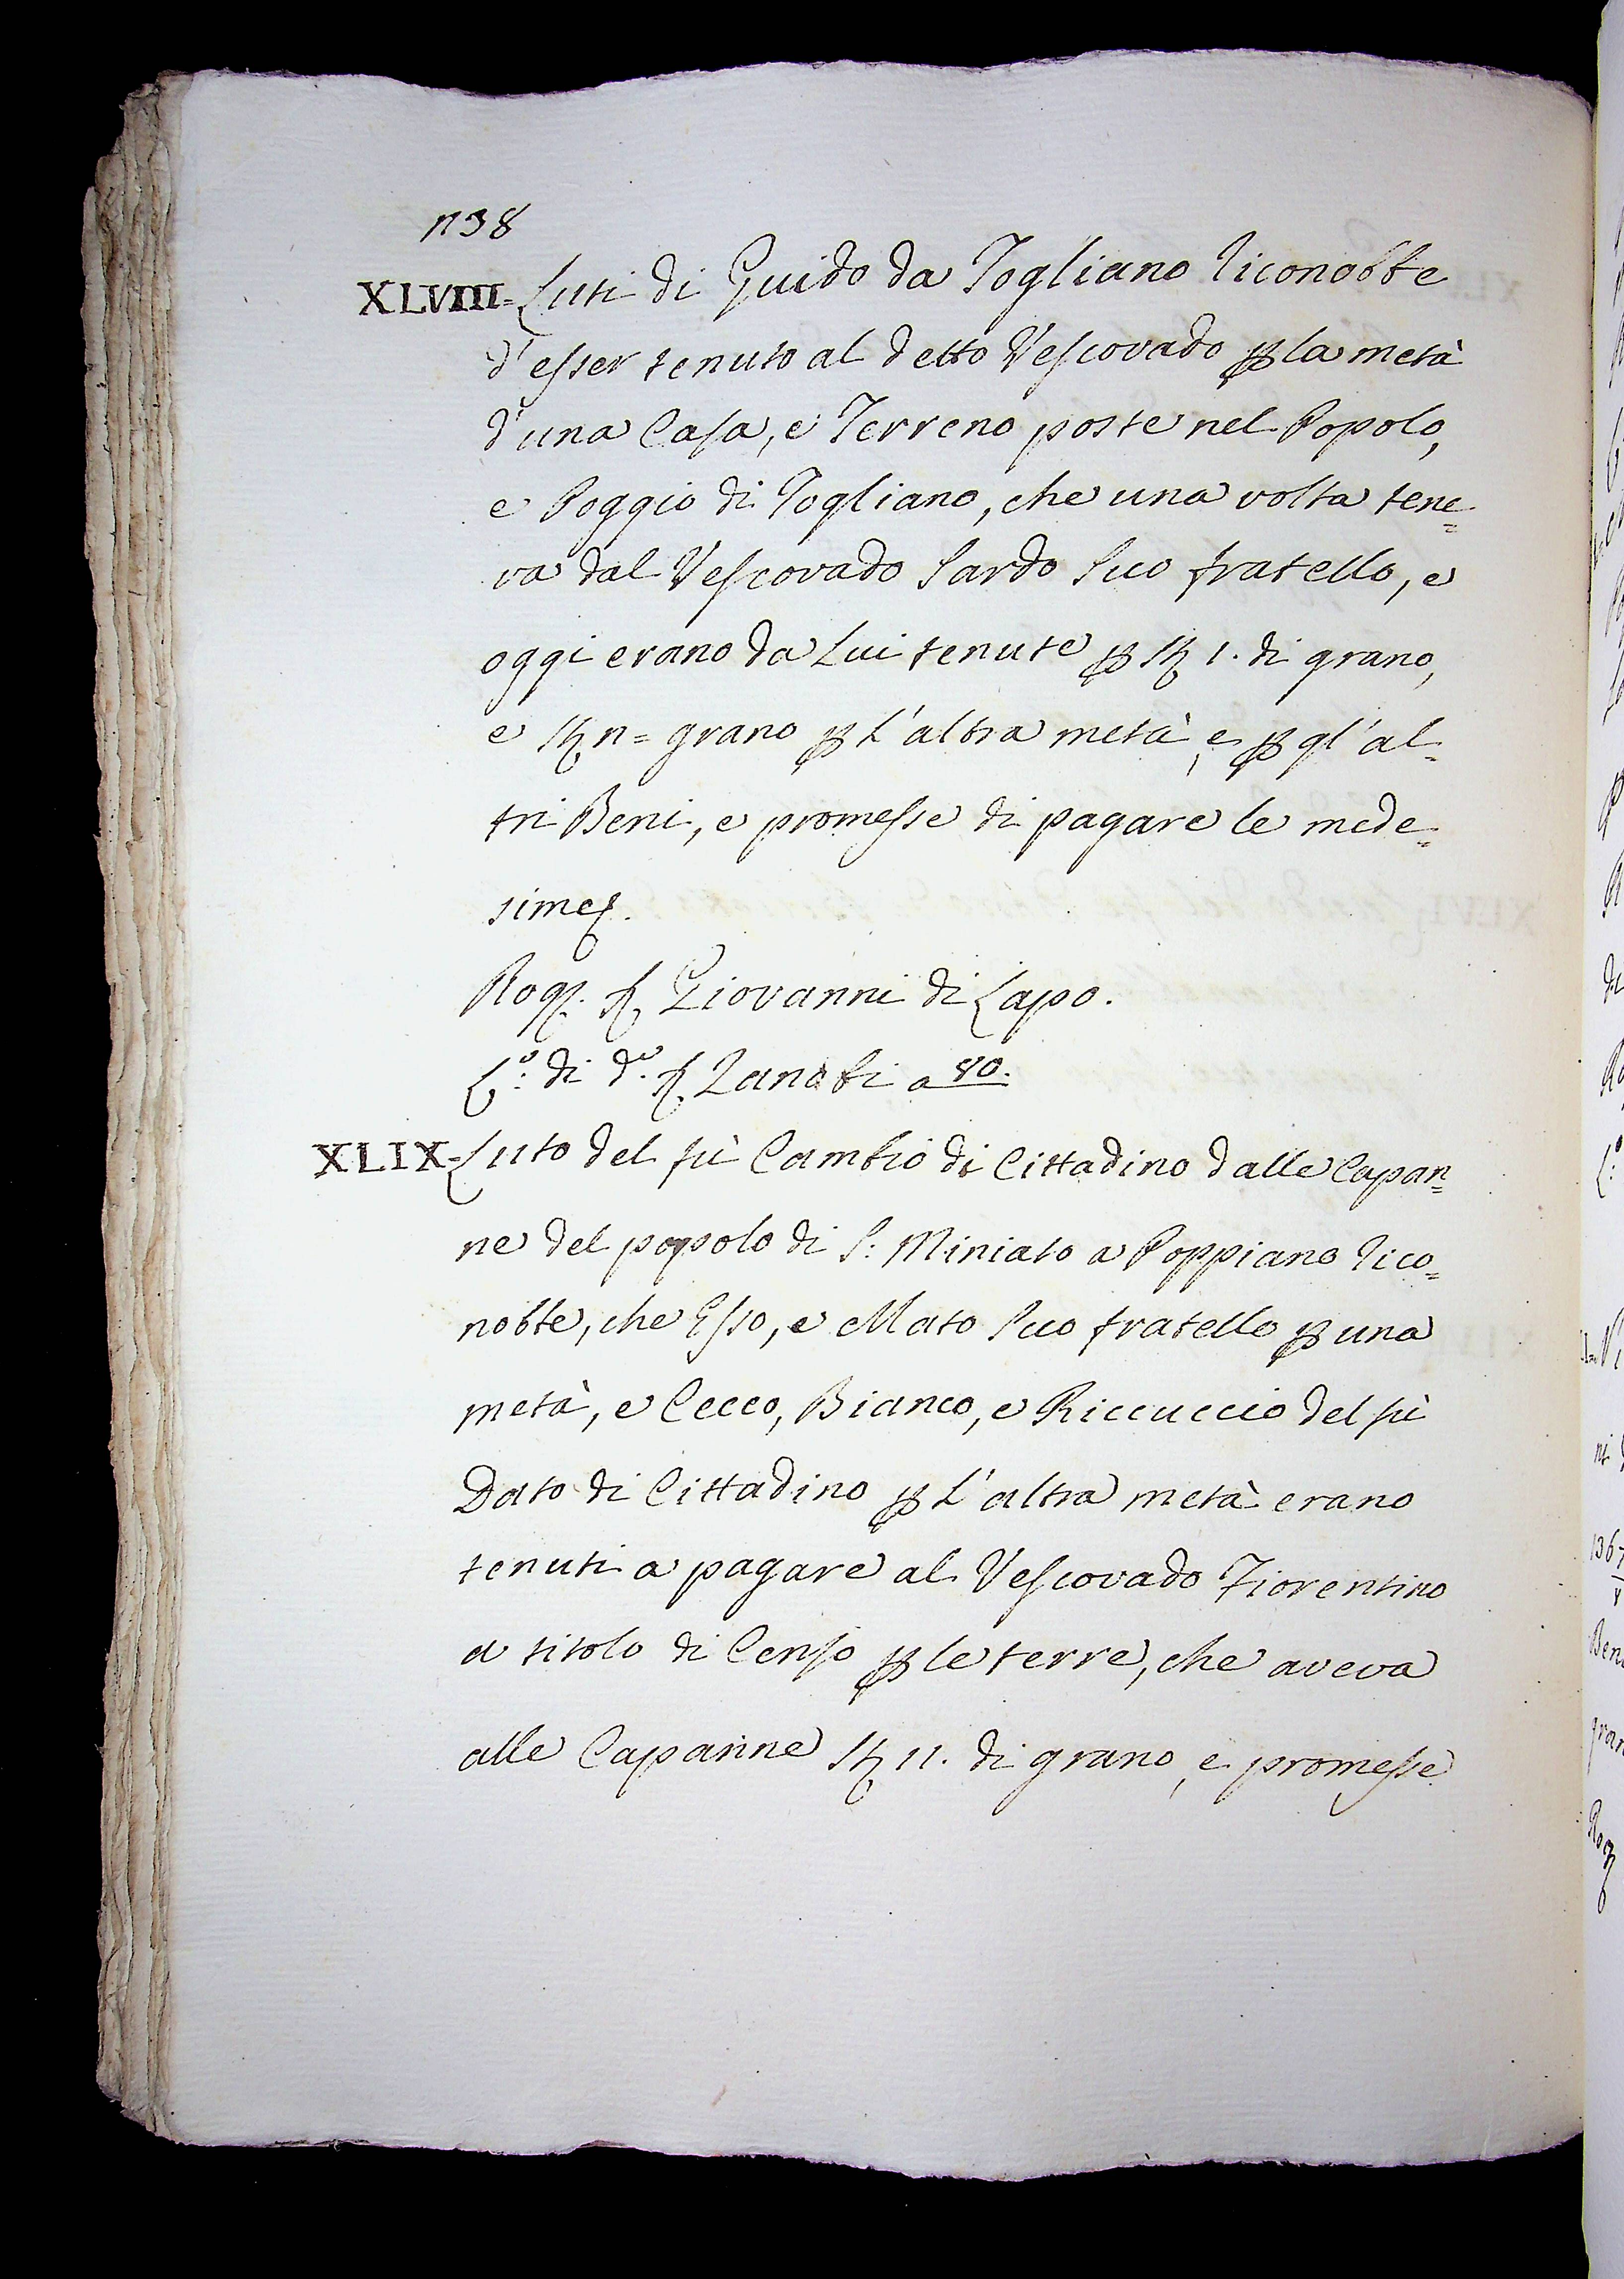 1138
XLVIII= Luti di Guido da Fogliano riconobbe
d'esser tenuto al detto Vescovado ꝑ la metà
d'una Casa, e Terreno poste nel Popolo,
e Poggio di Fogliano, che una volta tene=
va dal Vescovado Sardo Suo fratello, e
oggi erano da Lui tenute ꝑ st. 1. di grano,
e st. n= grano ꝑ L'altra metà, e ꝑ gl'al=
tri Beni, e promesse di pagare le mede=
sime
Rog. S. Giovanni di Lapo.
L.º: di d.º S. Zanobi a 80.
XLIX= Luto del fù Cambio di Cittadino dalle Capan=
ne del popolo di S: Miniato a Poppiano rico=
nobbe, che Esso, e Mato Suo fratello ꝑ una
metà, e Cecco, Bianco, e Riccuccio del fù
Dato di Cittadino ꝑ L'altra metà erano
tenuti a pagare al Vescovado Fiorentino
a titolo di Censo ꝑ le terre, che aveva
alle Capanne st. 11. di grano, e promesse